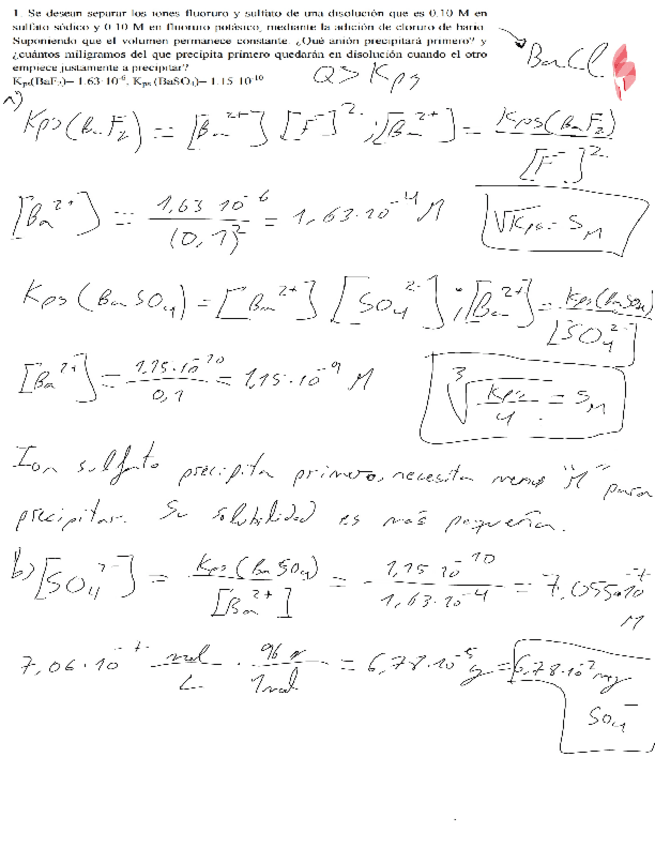 1. Se desean separar los iones fluoruro y sulfato de una disolución que es 0.10 M en
sulfato sódico y 0.10 M en fluoruro potásico, mediante la adición de cloruro de bario.
Suponiendo que el volumen permanece constante. ¿Qué anión precipitará primero? y
¿cuántos miligramos del que precipita primero quedarán en disolución cuando el otro
empiece justamente a precipitar?
Kps(BaF₂)= 1.63·10⁻⁶, Kps (BaSO₄)= 1.15·10⁻¹⁰
BaCl
Q > Kps
a)
Kps(BaF₂) = [Ba²⁺] [F⁻]² ; [Ba²⁺] = Kps(BaF₂) / [F⁻]²
[Ba²⁺] = 1,63 10⁻⁶ / (0,1)² = 1,63·10⁻⁴ M
√Kps = S M
Kps (BaSO₄) = [Ba²⁺] [SO₄²⁻] ; [Ba²⁺] = Kps(BaSO₄) / [SO₄²⁻]
[Ba²⁺] = 1,15·10⁻¹⁰ / 0,1 = 1,15·10⁻⁹ M
³√Kps / 4 = S M
Ion sulfato precipita primero, necesita menos "M" para
precipitar. Su solubilidad es más pequeña.
b) [SO₄²⁻] = Kps (BaSO₄) / [Ba²⁺] = 1,15 10⁻¹⁰ / 1,63·10⁻⁴ = 7,055·10⁻⁷ M
7,06·10⁻⁷ mol / L · 96 g / 1 mol = 6,78·10⁻⁵ g = 6,78·10⁻² mg
SO₄⁻